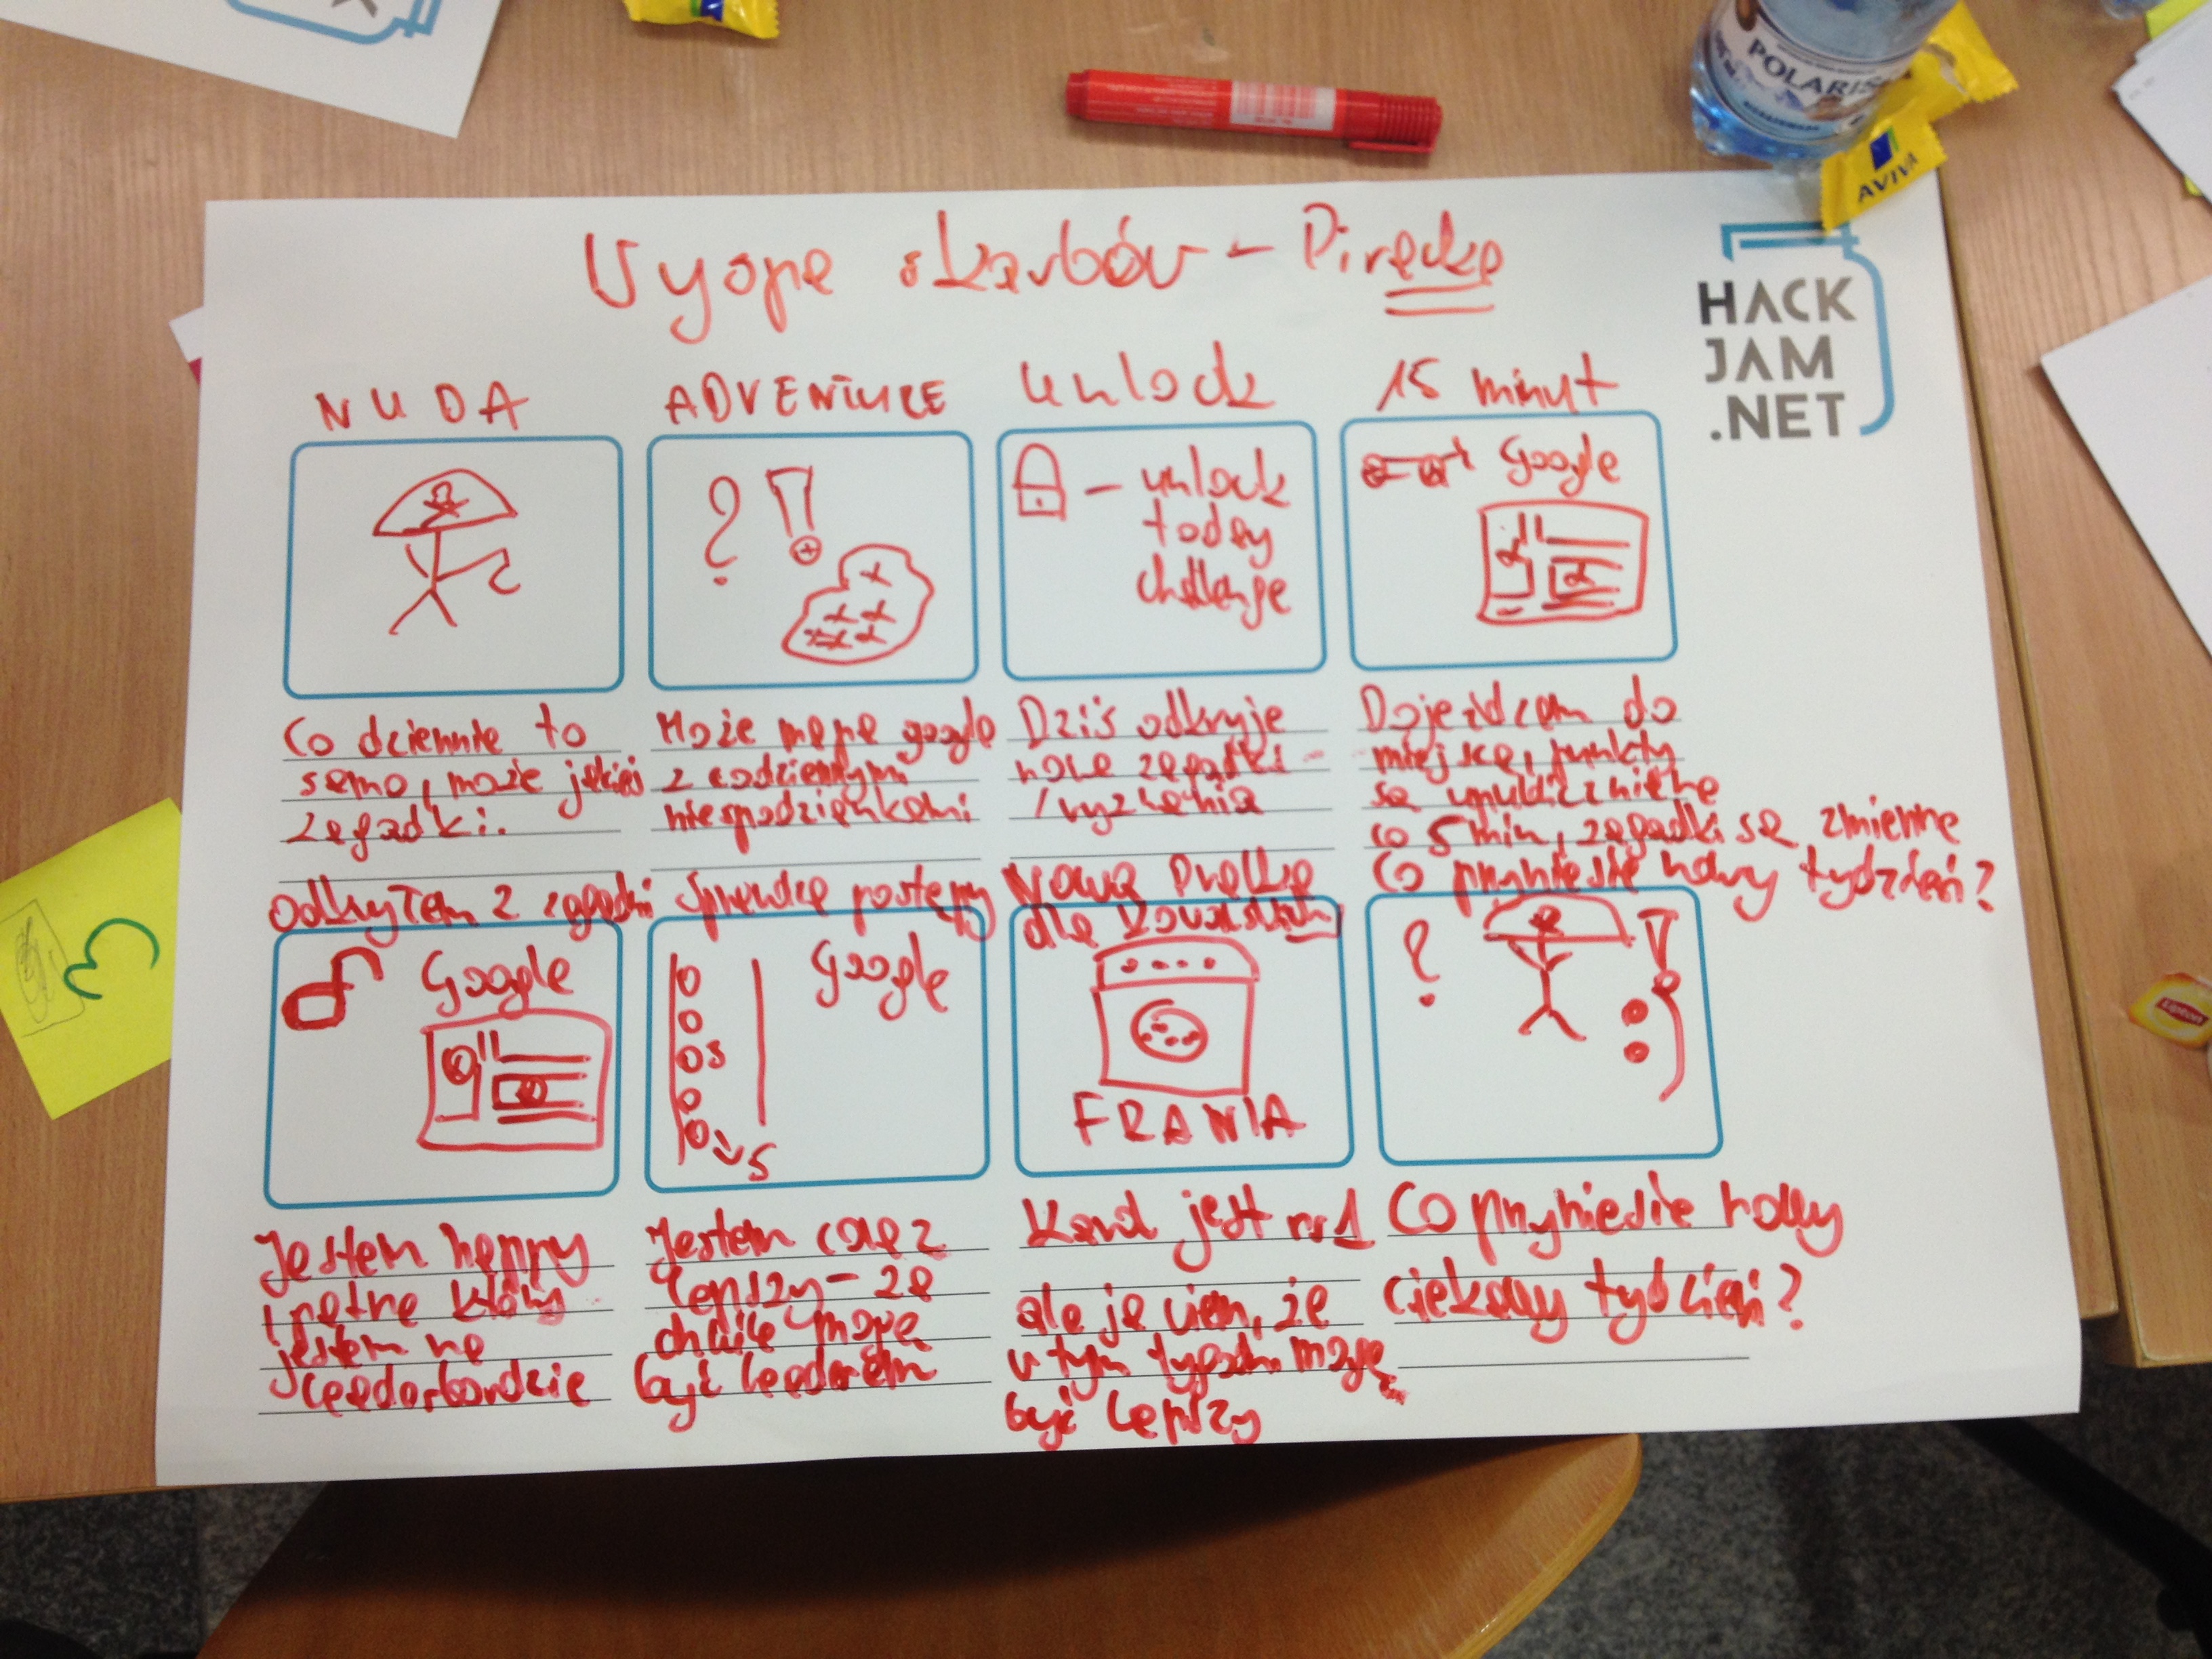 Wyspa skarbów - Piracka
HACK
JAM
.NET
POLARIS
AVIVA
NUDA
ADVENTURE
Unlock
15 minut
? !
- unlock
today
challenge
Google
Co dziennie to
samo, może jakieś
zagadki.
Może mapa google
z codziennymi
niespodziankami
Dziś odkryję
nowe zagadki -
/wyzwania
Dojeżdżam do
miejsca, punkty
są
co 5 min, zagadki są zmienne
odkryłem 2 zagadki
Sprawdzę postępy
Nowa Pralka
dla
Co przyniesie nowy tydzień?
Google
Google
5
5
FRANIA
? !
3
Lipton
Jestem happy
i patrzę który
jestem na
leedorbordzie
Jestem coraz
lepszy - za
chwilę mogę
być leaderem
Karol jest nr 1
ale ja wiem, że
w tym tygodn. mogę
być lepszy
Co przyniesie nowy
ciekawy tydzień?